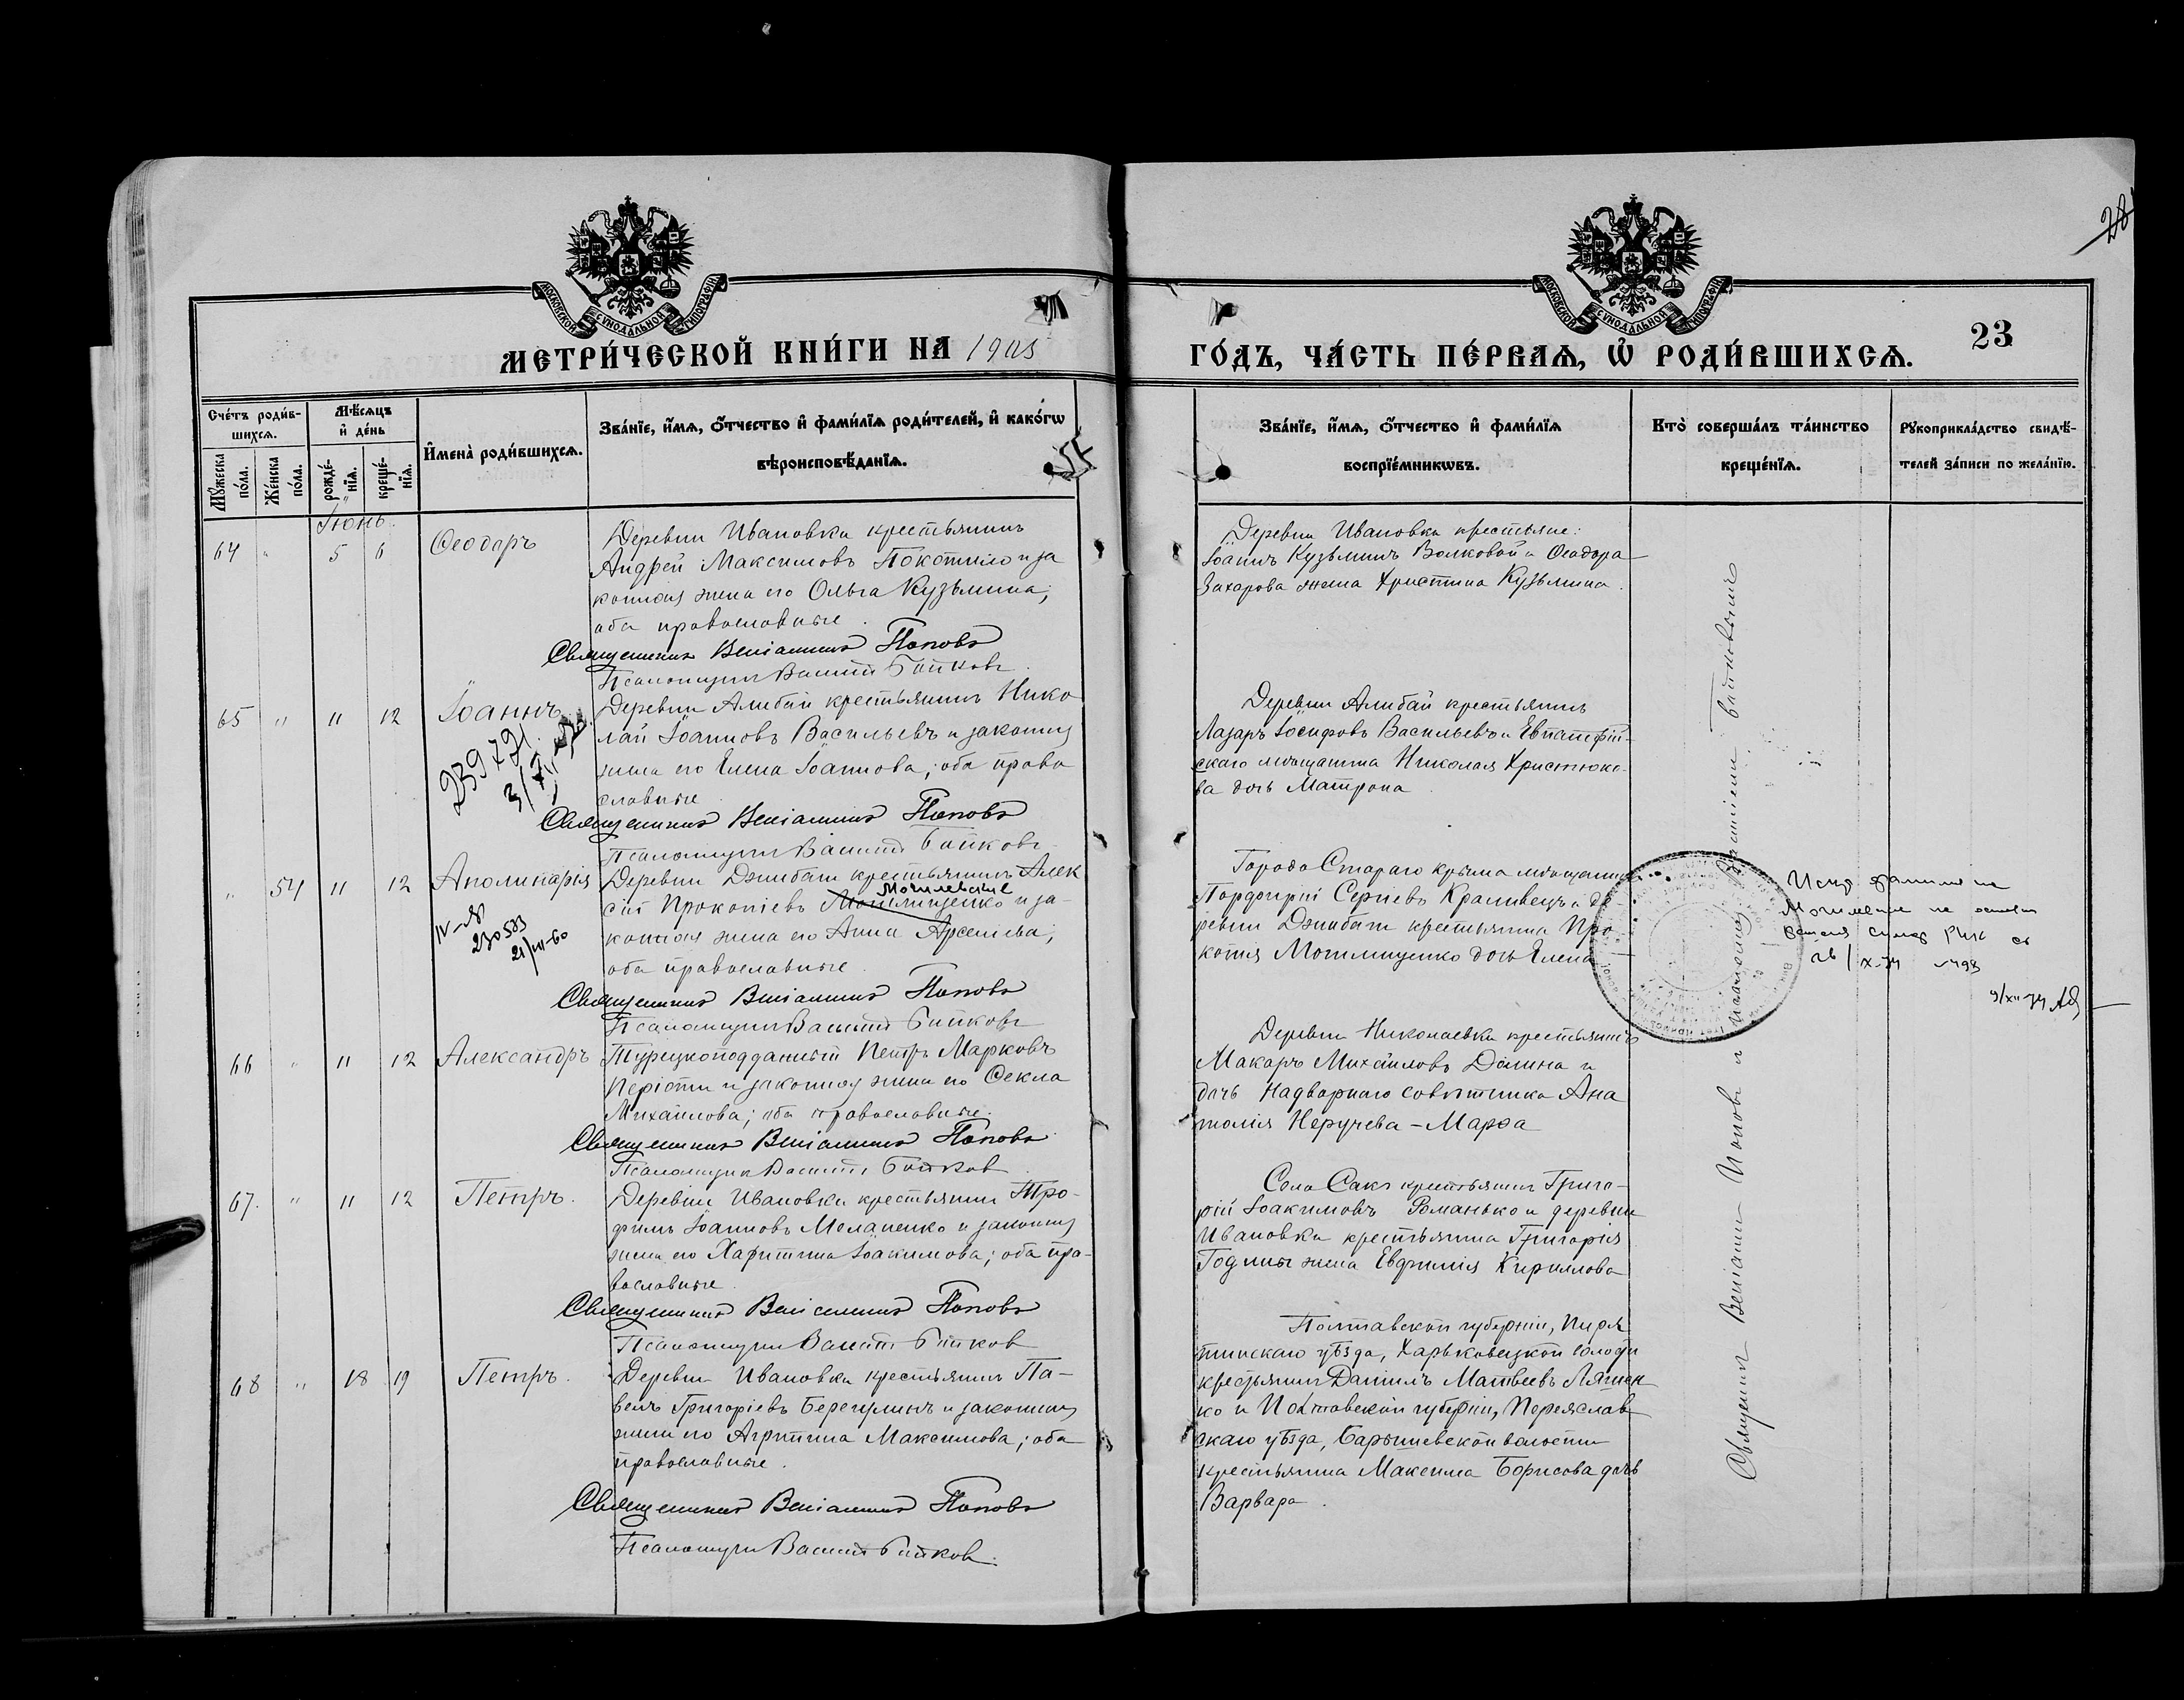 28
МОСКОВСКОЙ СУНОДАЛЬНОЙ ТИПОГРАФІИ
МОСКОВСКОЙ СУНОДАЛЬНОЙ ТИПОГРАФІИ
МЕТРИ́ЧЕСКОЙ КНИ́ГИ НА 1905
ГО́ДЪ, ЧА́СТЬ ПЕ́РВАѦ, Ѽ РОДИ́ВШИХСѦ.
23
Сче́тъ роди́в-
шихсѧ.
Мꙋ́жеска по́ла.
Же́нска по́ла.
Мѣ́сѧцъ
и҆ де́нь
рожде́-
нїѧ.
креще́-
нїѧ.
И҆мена̀ роди́вшихсѧ.
Зва́нїе, и҆́мѧ, ѻ҆́тчество и҆ фами́лїѧ роди́телей, и҆ како́гѡ
вѣроисповѣ́данїѧ.
Зва́нїе, и҆́мѧ, ѻ҆́тчество и҆ фами́лїѧ
воспрїе́мникѡвъ.
Кто̀ соверша́лъ та́инство
креще́нїѧ.
Рꙋкоприкла́дство свидѣ́-
телей за́писи по жела́нїю.
Іюнь
64 " 5 6 Ѳеодоръ
Деревни Ивановки крестьянинъ
Андрей Максимовъ Покотило и за
конная жена его Ольга Кузьмина;
оба православные.
Священникъ Веніаминъ Поповъ
Псаломщикъ Василій Байковъ
Деревни Ивановки крестьяне:
Іоаннъ Кузьминъ Волковой и Ѳеодора
Захарова жена Христина Кузьмина.
65 " 11 12 Іоаннъ
239791
Деревни Алибай крестьянинъ Нико
лай Іоанновъ Васильевъ и законная
жена его Елена Іоаннова; оба право
славные
Священникъ Веніаминъ Поповъ
Псаломщикъ Василій Байковъ
Деревни Алибай крестьянинъ
Лазарь Іосифовъ Васильевъ и Евпаторій-
скаго мѣщанина Николая Христюко-
ва дочь Матрона
" 54 11 12 Аполинарія
230583
21/VII-60
Деревни Джабачи крестьянинъ Алек
Могилевские
сій Прокопіевъ Могилищенко и за-
конная жена его Анна Арсеніева;
оба православные.
Священникъ Веніаминъ Поповъ
Псаломщикъ Василій Байковъ
Города Стараго Крыма мѣщанинъ
Порфирій Сергіевъ Крапивецъ и де
ревни Джабачи крестьянина Про
копія Могилищенко дочь Елена
9/XII-74
66 " 11 12 Александръ
Турецкоподданный Петръ Марковъ
Періоти и законная жена его Ѳекла
Михайлова; оба православные.
Священникъ Веніаминъ Поповъ
Псаломщикъ Василій Байков
Деревни Николаевки крестьянинъ
Макаръ Михайловъ Долина и
дочь Надворнаго совѣтника Ана
толія Неручева - Марѳа
67. " 11 12 Петръ.
Деревни Ивановки крестьянинъ Тро-
фимъ Іоанновъ Меланенко и законная
жена его Харитина Іоакимова; оба пра-
вославные.
Священникъ Веніаминъ Поповъ
Псаломщикъ Василій Байков
Села Саки крестьянинъ Григо-
рій Іоакимовъ Романько и деревни
Ивановки крестьянина Григорія
Годины жена Евфимія Кириллова
68 " 18 19 Петръ.
Деревни Ивановки крестьянинъ Па-
велъ Григоріевъ и законная
жена его Агрипина Максимова; оба
православные.
Священникъ Веніаминъ Поповъ
Псаломщикъ Василій Байков.
Полтавской губерніи, Пиря
тинскаго уѣзда, Харьковецкой волости
крестьянинъ Даніилъ Матвеевъ Ляшен
ко и Полтавской губерніи, Переяслав
скаго уѣзда, Барышевской волости
крестьянина Максима Борисова дочь
Варвара.
Священникъ Веніаминъ Поповъ и псаломщикъ Василіемъ Байковымъ